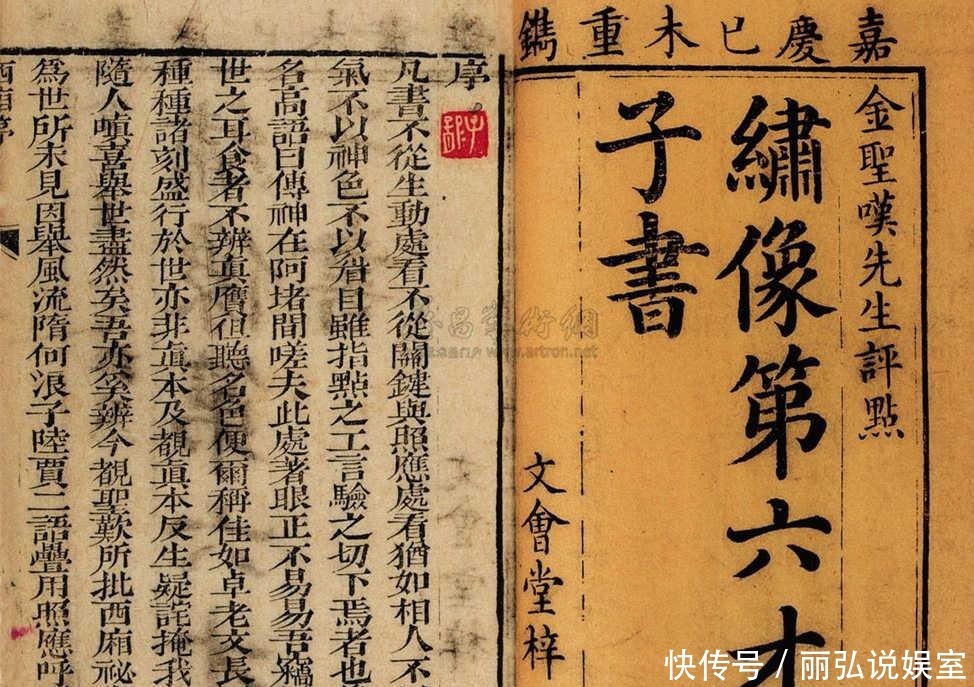 嘉慶己未重鐫
金聖嘆先生評點
繡像第六才
子書
文會堂梓
序
凡書不從生動處看不從關鍵與照應處看猶如相人不
氣不以神色不以眉目雖指點之工言驗之切下焉者也
名高語曰傳神在阿堵間嗟夫此處著眼正不易易吾竊
世之耳食者不辨真贗但聽名色便爾稱佳如卓老文長
種種諸刻盛行於世亦非真本及覩真本反生疑詫掩我
隨人嗔喜舉世盡然矣吾亦奚辨今覩聖歎所批西廂祕
為世所未見因舉風流隋何浪子陸賈二語疊用照應呼
西廂序
www.artron.net
快传号/丽弘说娱室